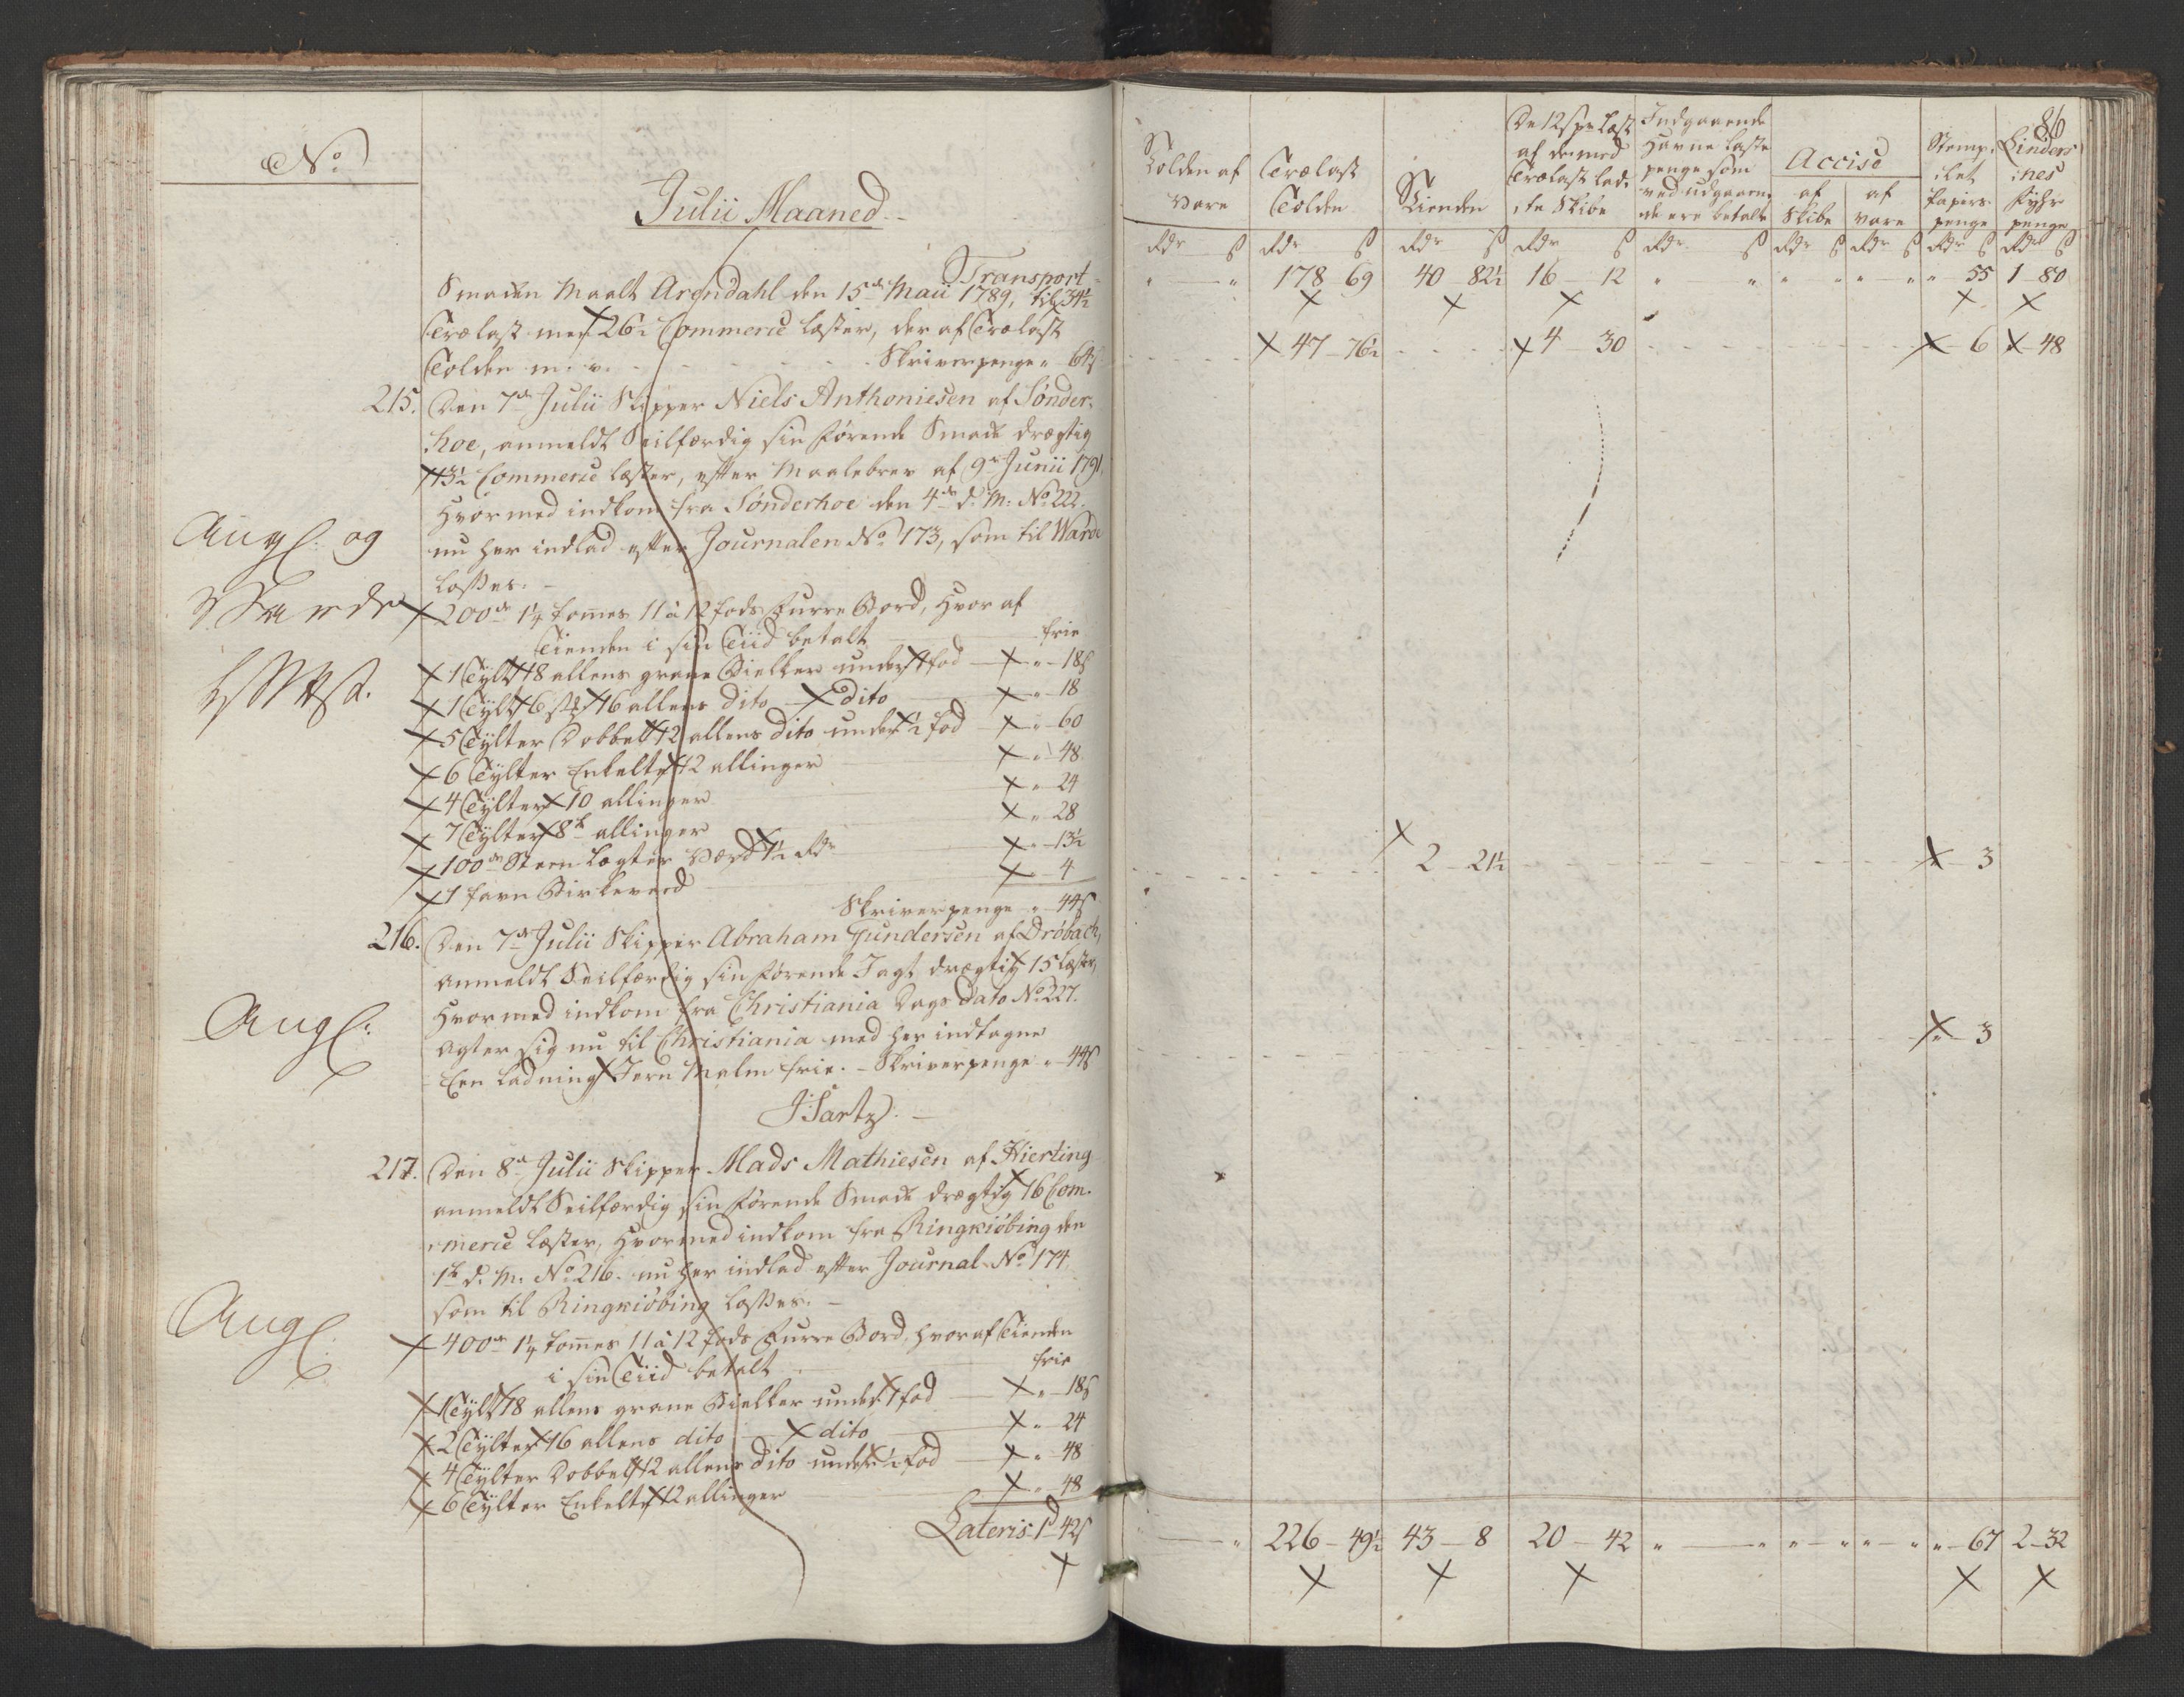 No
Julii Maaned
Transport
Smaken Maalt Arendahl den 15de Maii 1789, til 34½
Trælast med 26½ Commerce læster, der af Trælast
Tolden m. v. Skriverpenge " 64ß
215. Den 7de Julii Skipper Niels Anthoniesen af Sønder-
hoe, anmeldt Seilfærdig sin førende Smack drægtig
13½ Commerce læster, efter Maalebrev af 9de Junii 1791,
hvormed indkom fra Sønderhoe den 4de d. M. No 222.
Angl: og
nu her indlad efter Journalen No 173, som til Warde
losses.
Warde
200de 1¼ tommes 11 à 12 fods Furre Bord, hvor af
Tienden i sin Tiid betalt frie
1 Tylt 18 allens grane Bielker under 1 fod " 18ß
1 Tylt 6 st 16 allens dito dito " 18
5 Tylter Dobbelt 12 allens dito under ½ fod " 60
6 Tylter Enkelte 12 allinger " 48
4 Tylter 10 allinger " 24
7 Tylter 8te allinger " 28
100de Steen Lægter værd 1½ Rdr " 13½
1 favn Birkeveed " 4
Skriverpenge " 44ß
216. Den 7de Julii Skipper Abraham Gundersen af Drøbach,
anmeldt Seilfærdig sin førende Jagt drægtig 15 læster,
hvormed indkom fra Christiania Dags dato No 227.
Angl:
agter sig nu til Christiania med her indtagne
Een ladning Jern Malm frie. - Skriverpenge " 44ß
J Sartz.
217. Den 8de Julii Skipper Mads Mathiesen af Hierting
anmeldt Seilfærdig sin førende Smack drægtig 16 Com-
merce læster, hvormed indkom fra Ringkiøbing den
1te d. M. No 216. nu her indlad efter Journal No 174
som til Ringkiøbing losses.
Angl:
400de 1¼ tommes 11 à 12 fods Furre Bord, hvoraf Tienden
i sin Tiid betalt frie
1 Tylt 18 allens grane Bielker under 1 fod " 18ß
2 Tylter 16 allens dito dito " 24
4 Tylter Dobbelt 12 allens dito under ½ fod " 48
6 Tylter Enkelte 12 allinger " 48
Lateris 1d 42ß
86
Tolden af Vare
Trælast Tolden
Tienden
De 12 s pr læst af de med Trælast lad- te Skibe
Indgaaende Havne laste penge som ved udgaaen- de ere betalt
Accise
af Skibe
af vare
Stemp- let Papirs penge
Linders- nes Fyhr penge
Rdr ß Rdr ß Rdr ß Rdr ß Rdr ß Rdr ß Rdr ß Rdr ß Rdr ß
" " 178 69 40 82½ 16 12 " " " " " " " 55 1 80
47 76½ 4 30 6 48
2 21½ 3
" 3
" 226 49½ 43 8 20 42 " " " " " " " 67 2 32